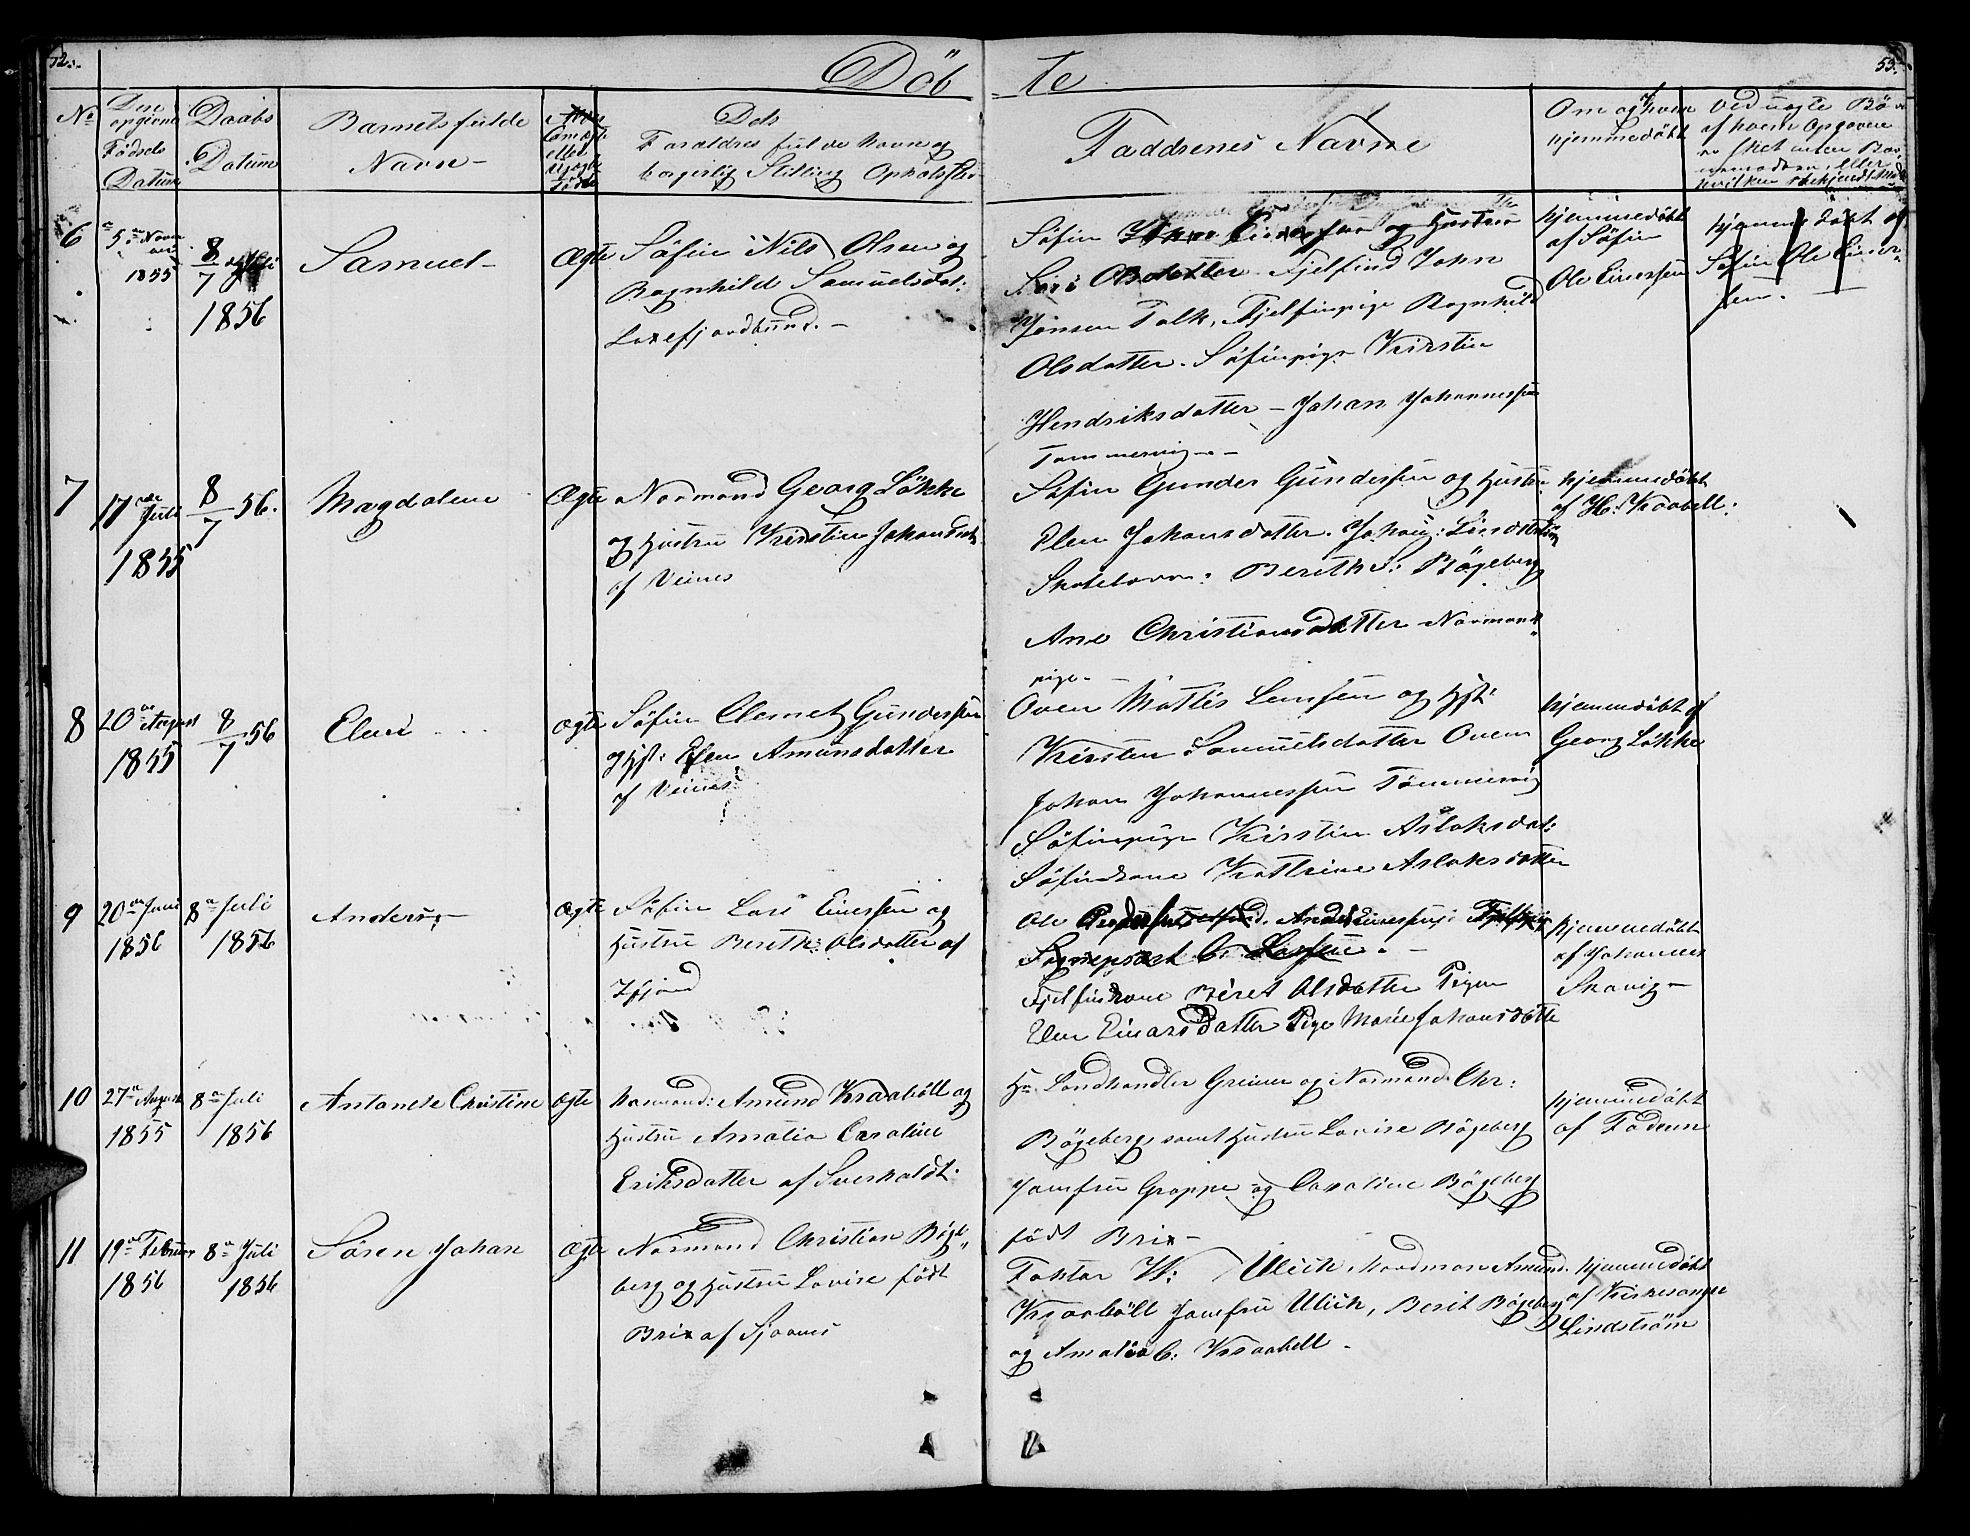 52.
Döb
te
53.
No
Den opgivne Födsels Datum
Daabs Datum
Barnets fulde Navn
Om ægte eller uægte Född
Dets Forældres fulde Navn og borgerlig Stilling Opholdssted
Faddrenes Navne
Om og af hvem hjemmedöbt
Ved uægte Börn af hvem Opgaven er sket
6
5te Novem
1855
8/7 Juli
1856
Samuel
Ægte
Söfin Nils Olsen og
Ragnhild Samuelsdat:
Laxefjordbund. -
Söfin Einersen og Hustru
Siri Olsdatter. Fjelfind John
Jonsen Talk, Fjelfinpige Ragnhild
Olsdatter. Söfinpige Kirstin
Hendriksdatter - Johan Johannessen
Tommervig -
hjemmedöbt
af Söfin
Ole Einersen
hjemmedöbt af
Söfin Ole Einer-
sen. -
7
17de Juli
1855
8/7 56.
Magdalene
Ægte
Normand Georg Lökke
og Hustru Kirstin Johansdat.
af Veines
Söfin Gunder Gundersen og Hustru
Elen Johansdatter. Johan: Lindström
Skolelærer. Berith S: Bögeberg
Ane Christiansdatter Normands
pige -
hjemmedöbt
af H: Kraabell.
8
20de August
1855
8/7 56
Elen
ægte
Söfin Clemet Gundersen
og Hst: Elen Amundsdatter
af Veines
Oven Mattis Larsen og Hst:
Kirsten Samuelsdatter Oven
Johan Johannessen Tömmervig
Söfinpige Kirstin Aslaksdat:
Söfindkone Kathrine Aslaksdatter
hjemmedöbt af
Georg Lökke
9
20de Juni
1856
8de Juli
1856
Anders
ægte
Söfin Lars Einersen og
Hustru Berith: Olsdatter af
Ifjord
Ole Anders Einersen
Sognepræst C:
Fjelfindkone Beret Olsdatter Pigen
Elen Einarsdatter Pige Marie Johansdatter
hjemmedöbt
af Johannes
Skavig -
10
27de August
1855
8de Juli
1856
Antonete Christine
ægte
Normand: Amund Kraaböll og
Hustru Amalia Caroline
Eriksdatter af Sverholdt.
Hr. Landhandler Greiner og Normand Chr:
Bögeberg samt Hustru Lovise Bögeberg
Jomfru Groppe og Caroline Bögeberg
födt Brix -
hjemmedöbt
af Faderen
11
19de Februar
1856
8de Juli
1856
Sören Johan
ægte
Normand Christian Böge-
berg og Hustru Lovise födt
Brix af Sjaanes
Faktor W: Ulich Nordmand Amund
Kraaböll Jomfru Ulich, Berit Bögeberg
og Amalia C: Kraabell -
hjemmedöbt
af Kirkesanger
Lindström